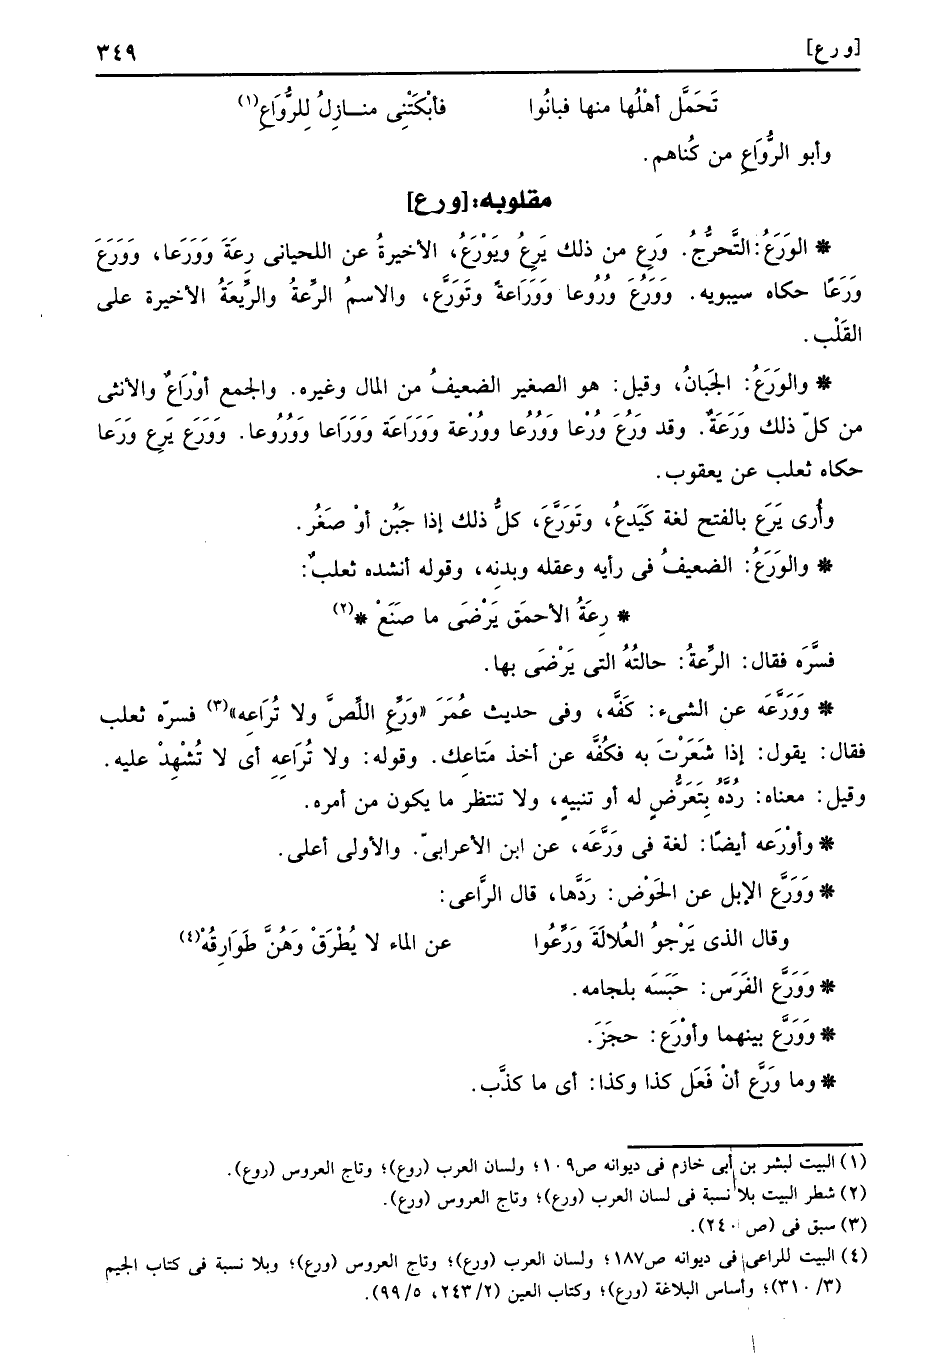 [و ر ع]
٣٤٩
تَحَمَّل أهْلُها منها فبانُوا فأبْكَتْنِى منــازِلُ لِلرُّوَاعِ(١)
وأبو الرُّوَاعِ من كُناهم.
مقلوبه: [و ر ع]
* الوَرَعُ: التَّحرُّجُ. وَرِع من ذلك يَرِعُ ويَوْرَعُ، الأخيرةُ عن اللحيانى رِعَةَ وَوَرَعا، وَوَرَعَ
وَرَعًا حكاه سيبويه. وَوَرُعَ وُرُوعا وَوَرَاعةً وتَوَرَّع، والاسمُ الرِّعةُ والرِّيعَةُ الأخيرة على
القَلْب.
* والوَرَعُ: الجَبانُ، وقيل: هو الصغير الضعيفُ من المال وغيره. والجمع أوْرَاعٌ والأنثى
من كلّ ذلك وَرَعَةٌ. وقد وَرُعَ وُرْعا وَوُرُعا ووُرْعة وَوَرَاعَة وَوَرَاعا وَوُرُوعا. وَوَرَع يَرِع وَرَعا
حكاه ثعلب عن يعقوب.
وأُرى يَرَع بالفتح لغة كَيَدعُ، وتَوَرَّعَ، كلُّ ذلك إذا جَبُن أوْ صَغُر.
* والوَرَعُ: الضعيفُ فى رأيه وعقله وبدنِه، وقوله أنشده ثعلبٌ:
* رِعَةُ الأحمَق يَرْضَى ما صَنَعْ *(٢)
فسَّرَه فقال: الرِّعةُ: حالتُهُ التى يَرْضَى بها.
* وَوَرَّعَه عن الشىء: كَفَّه، وفى حديث عُمَرَ «وَرِّعِ اللِّصَّ ولا تُرَاعِه»(٣) فسرّه ثعلب
فقال: يقول: إذا شَعَرْتَ به فكُفَّه عن أخذ مَتاعِك. وقوله: ولا تُرَاعِهِ أى لا تُشْهِدْ عليه.
وقيل: معناه: رُدَّهُ بِتَعَرُّضٍ له أو تنبيهٍ، ولا تنتظر ما يكون من أمره.
* وأوْرَعه أيضًا: لغة فى وَرَّعَه، عن ابن الأعرابىّ. والأولى أعلى.
* وَوَرَّع الإبل عن الحَوْض: رَدَّها، قال الرَّاعى:
وقال الذى يَرْجوُ العُلالَةَ وَرِّعُوا عن الماء لا يُطْرَقْ وَهُنَّ طَوَارِقُهْ(٤)
* وَوَرَّع الفَرَس: حَبَسَه بلجامه.
* وَوَرَّع بينهما وأوْرَع: حجَزَ.
* وما وَرَّع أنْ فَعَل كذا وكذا: أى ما كذَّب.
(١) البيت لبشر بن أبى خازم فى ديوانه ص١٠٩؛ ولسان العرب (روع)؛ وتاج العروس (روع).
(٢) شطر البيت بلا نسبة فى لسان العرب (ورع)؛ وتاج العروس (ورع).
(٣) سبق فى (ص ٢٤٠).
(٤) البيت للراعى فى ديوانه ص١٨٧؛ ولسان العرب (ورع)؛ وتاج العروس (ورع)؛ وبلا نسبة فى كتاب الجيم
(٣/ ٣١٠)؛ وأساس البلاغة (ورع)؛ وكتاب العين (٢/ ٢٤٣، ٥/ ٩٩).